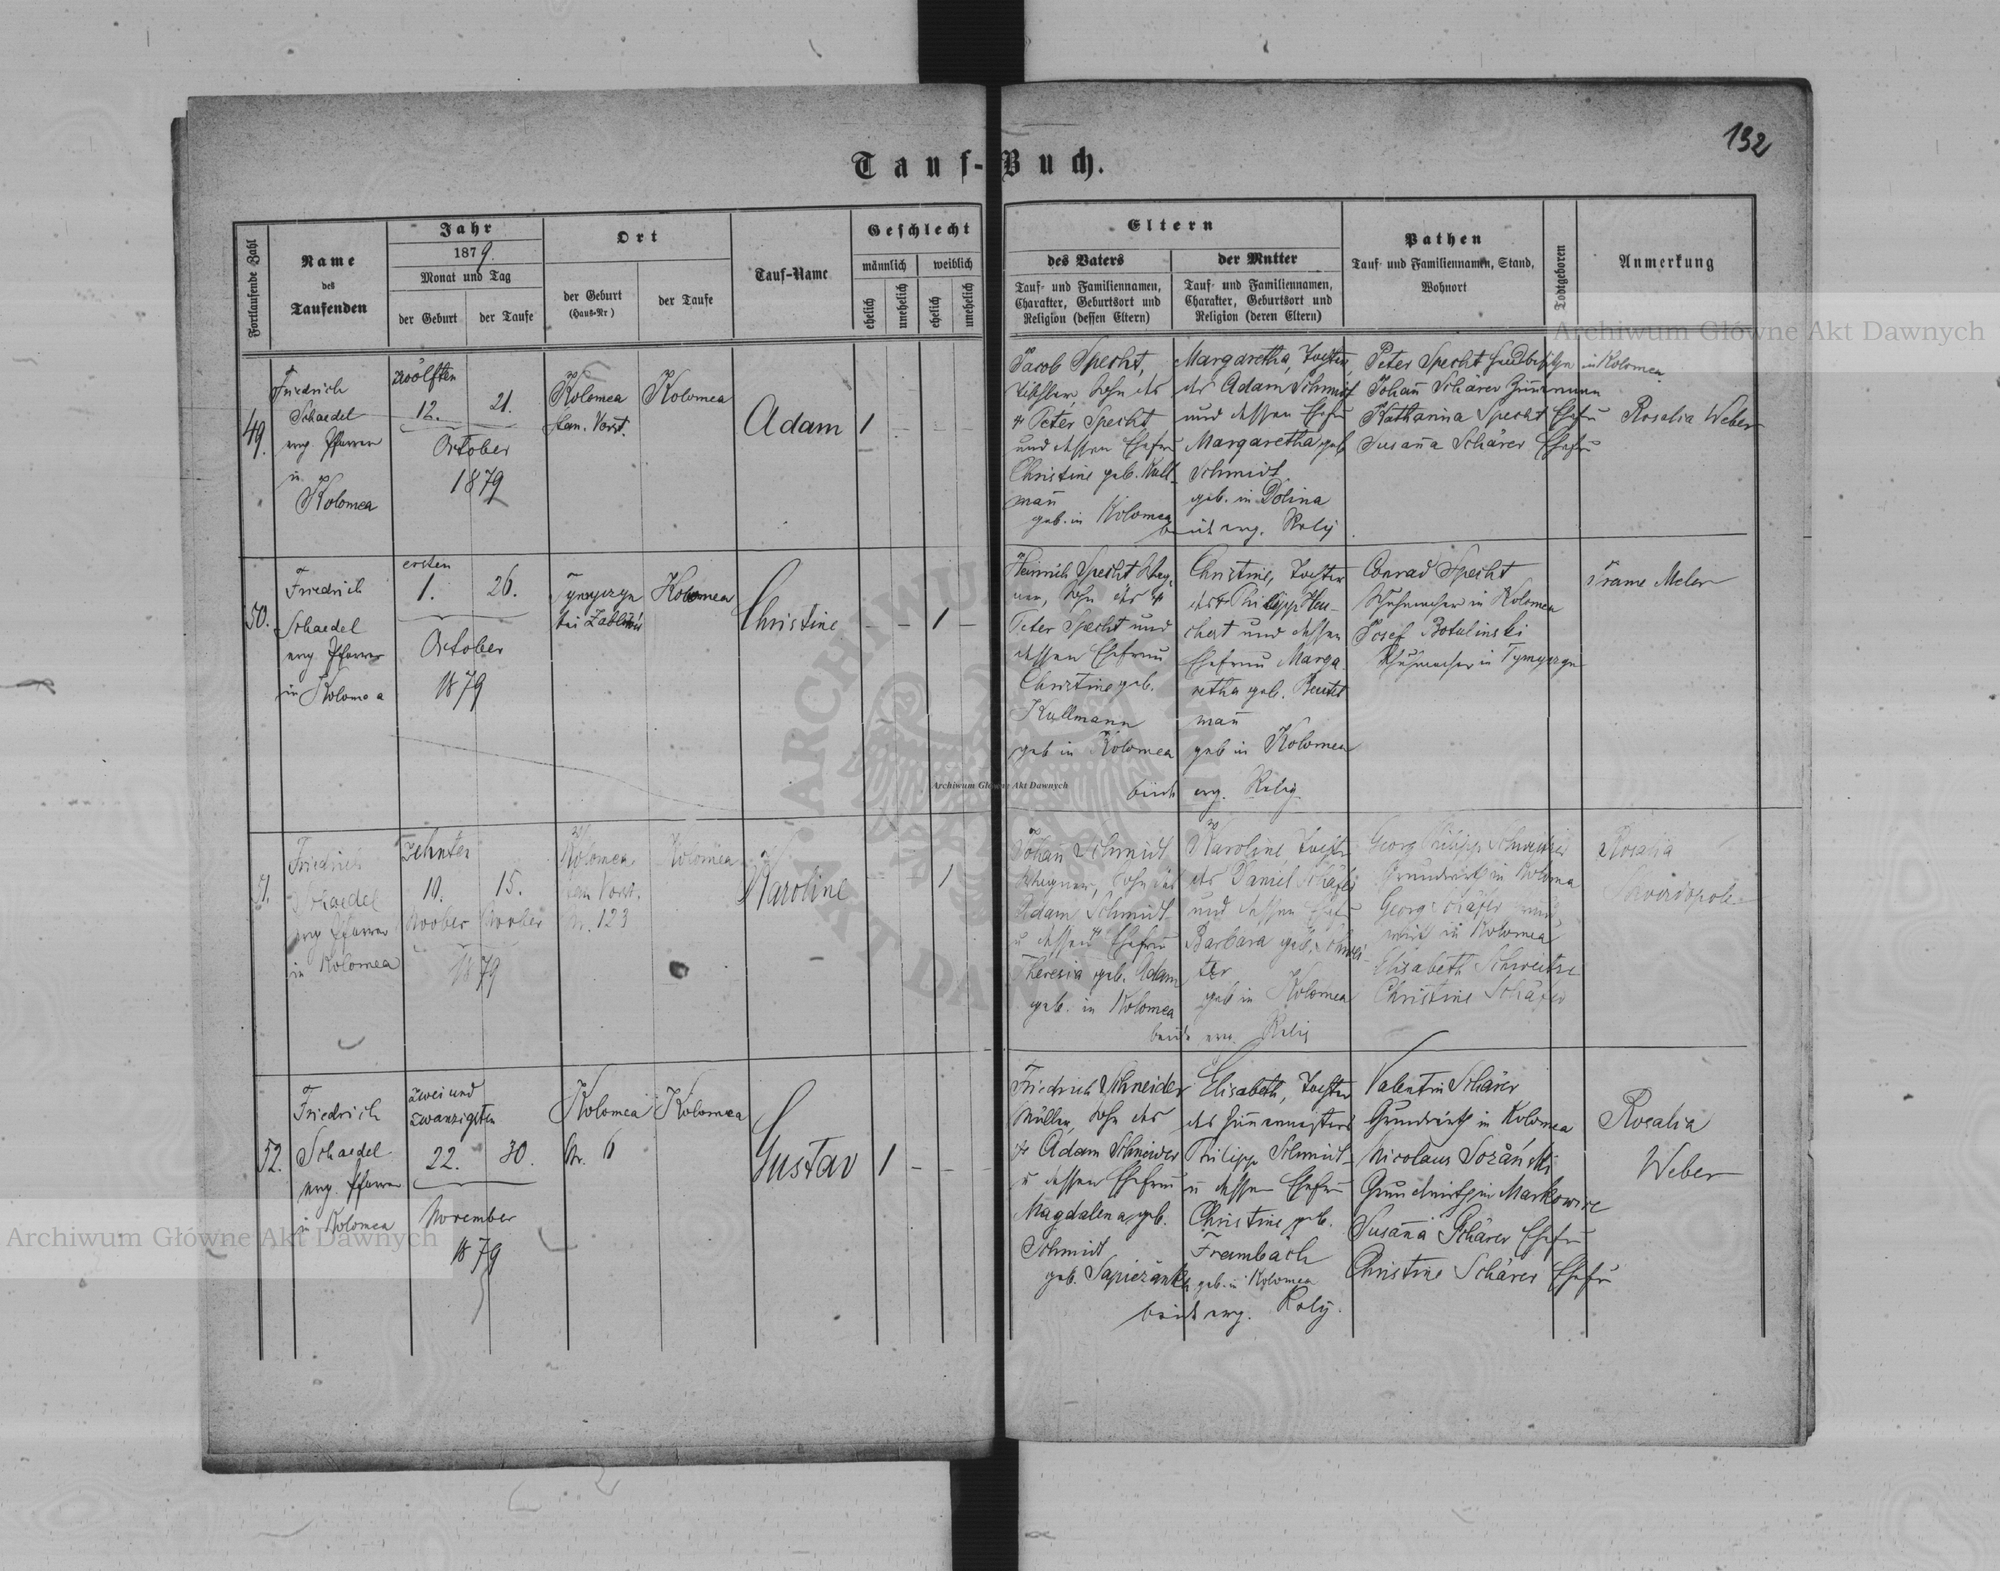 132
Tauf-Buch.
Fortlaufende Zahl
Name
des
Taufenden
Jahr
1879.
Monat und Tag
der Geburt
der Taufe
Ort
der Geburt
(Haus-Nr)
der Taufe
Tauf-Name
Geschlecht
männlich
weiblich
ehelich
unehelich
ehelich
unehelich
Eltern
des Vaters
Tauf- und Familiennamen,
Charakter, Geburtsort und
Religion (dessen Eltern)
der Mutter
Tauf- und Familiennamen,
Charakter, Geburtsort und
Religion (deren Eltern)
Pathen
Tauf- und Familiennamen, Stand,
Wohnort
Todtgeboren
Anmerkung
49.
Friedrich
Schaedel
evg. Pfarrer
in
Kolomea
zwölften
12.
21.
October
1879
Kolomea
Vorst.
Kolomea
Adam
1
Jacob Specht,
Sohn des
Peter Specht
und dessen Ehefrau
Christine geb. Kull-
mañ
geb. in Kolomea
Margaretha, Tochter
des Adam Schmidt
und dessen Ehefr
Margaretha geb
Schmidt
geb. in Dolina
beide evg. Relig.
Peter Specht in Kolomea
Johañ Schärer Zim̃ermann
Katharina Specht Ehefr
Susaña Schärer Ehefr
Rosalia Weber
50.
Friedrich
Schaedel
evg. Pfarrer
in Kolomea
ersten
1.
26.
October
1879
bei
Kolomea
Christine
1
Heinrich Specht Wag-
ner, Sohn des
Peter Specht und
dessen Ehefrau
Christine geb.
Kullmann
geb in Kolomea
Christine, Tochter
des Philipp Heu-
chert und dessen
Ehefrau Marga
retha geb.
mañ
geb in Kolomea
beide evg. Relig
Conrad Specht
Schuhmacher in Kolomea
Josef Botulinski
Schuhmacher in
51.
Friedrich
Schaedel
evg Pfarrer
in Kolomea
Zehnten
10.
15.
Novber Novber
1879
Kolomea
Vorst.
N. 123
Kolomea
Karoline
1
Johañ Schmidt
Wagner, Sohn des
Adam Schmidt
u dessen Ehefrau
Theresia geb. Adam
geb. in Kolomea
Karoline Tochter
des Daniel Schäfer
und dessen Ehefr
Barbara geb. Schwei-
tzer
geb in Kolomea
beide evg. Relig
Georg Philipp Schweitzer
Grundwirth in Kolomea
Georg Schäfer Grund-
wirth in Kolomea
Elisabeth Schweitzer
Christine Schäfer
Rosalia
52.
Friedrich
Schaedel
evg. Pfarrer
in Kolomea
zwei und
zwanzigsten
22.
30.
November
1879
Kolomea
Nr. 6
Kolomea
Gustav
1
Friedrich Schneider
Müller, Sohn des
Adam Schneider
u dessen Ehefrau
Magdalena geb.
Schmidt
geb.
Elisabeth, Tochter
des Zim̃ermeisters
Philipp Schmidt
u dessen Ehefr
Christine geb.
Frambach
geb. in Kolomea
beide evg. Relig.
Valentin Schärer
Grundwirth in Kolomea
Nicolaus
Grundwirth in Markowice
Susaña Schärer Ehefr
Christine Schärer Ehefr
Rosalia
Weber
Archiwum Główne Akt Dawnych
Archiwum Główne Akt Dawnych
Archiwum Główne Akt Dawnych